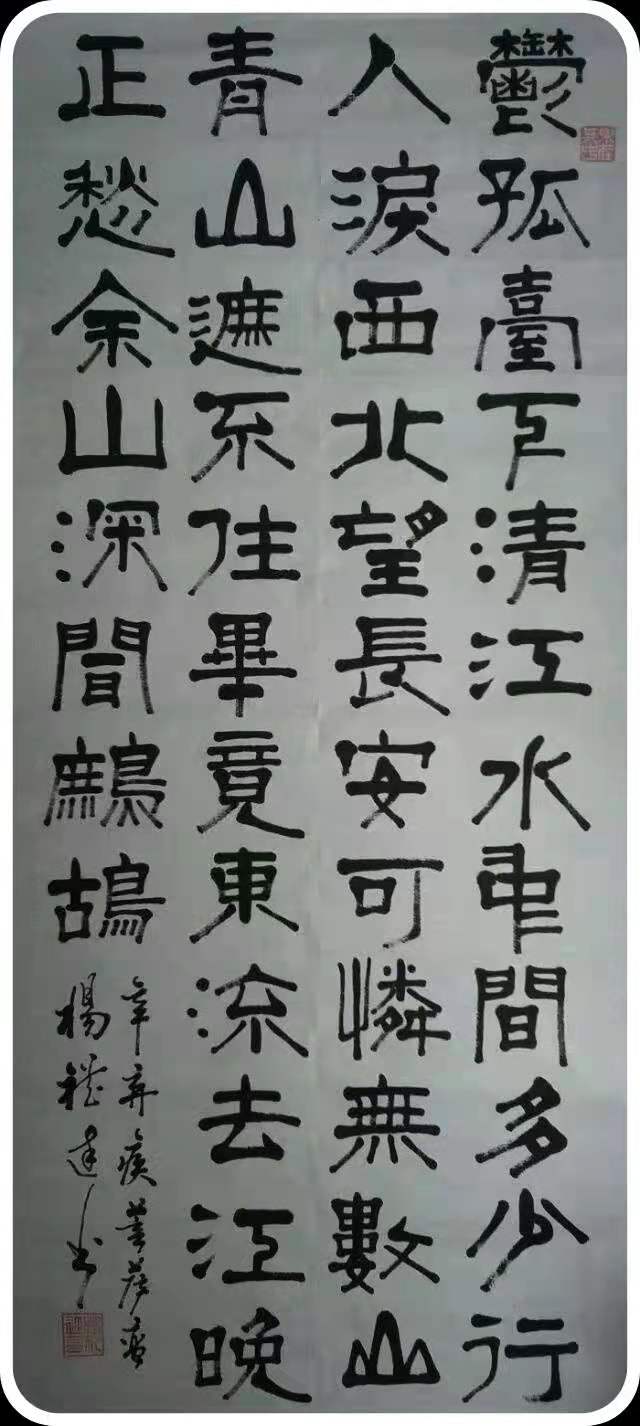 鬱孤臺下清江水中間多少行
人淚西北望長安可憐無數山
青山遮不住畢竟東流去江晚
正愁余山深間鷓鴣
辛弃疾菩薩蠻
楊達书